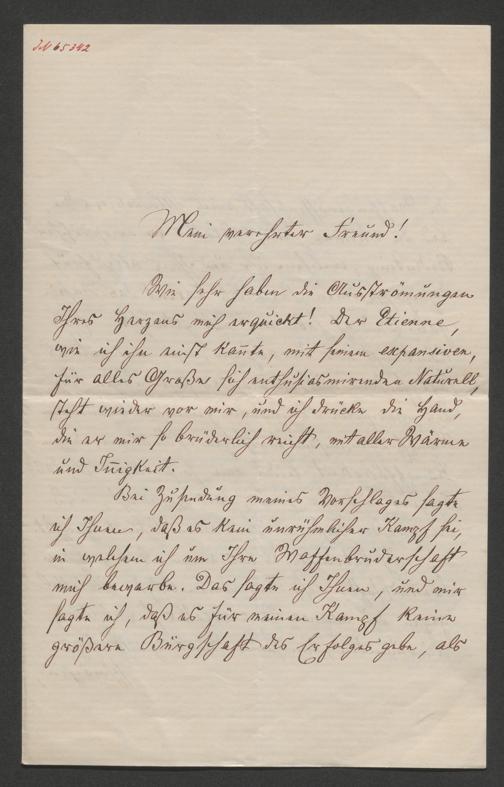 J.N 65342
Mein verehrter Freund!
Wie sehr haben die Ausströmungen
Ihres Herzens mich erquickt! Der Etienne,
wie ich ihn einst kan̄te, mit seinem expansiven,
für alles Große sich enthusiasmirenden Naturell,
steht wieder vor mir, und ich drücke die Hand,
die er mir so brüderlich reicht, mit aller Wärme
und In̄igkeit.
Bei Zusendung meines Vorschlages sagte
ich Ihnen, daß es kein unrühmlicher Kampf sei,
in welchem ich um Ihre Waffenbruderschaft
mich bewarbe. Das sagte ich Ihnen, und mir
sagte ich, daß es für meinen Kampf keine
größere Bürgschaft des Erfolges gebe, als